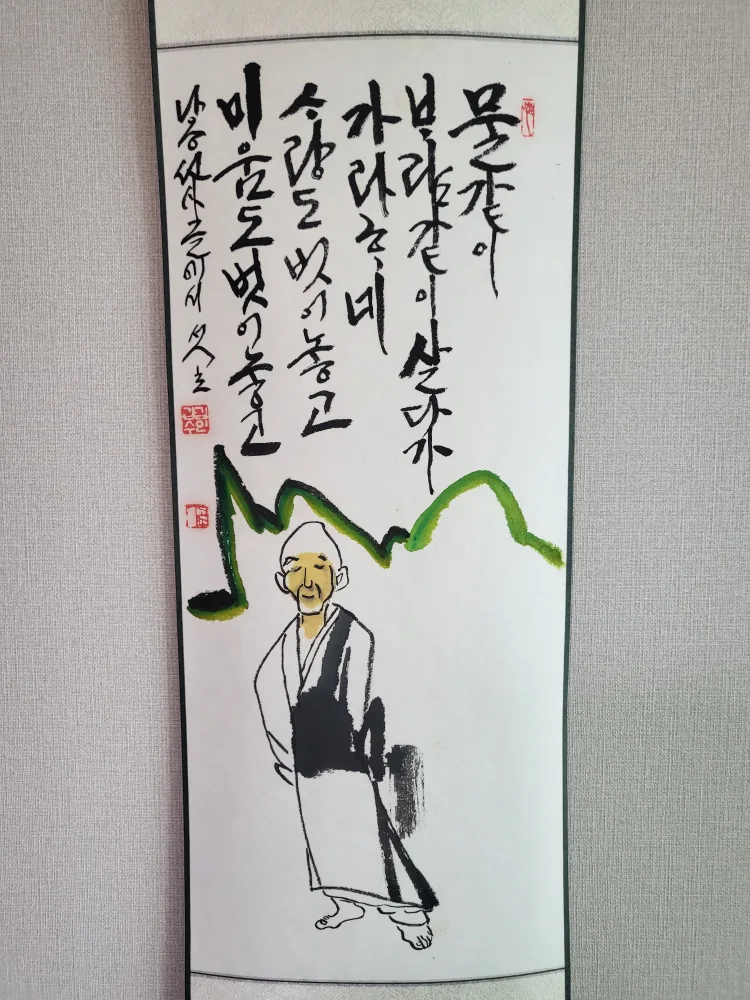 물같이
ᄇᆞ람같이 살다가
가라ᄒᆞ네
ᄉᆞ랑도 벗어놓고
미움도 벗어놓고
나옹선사 글에서